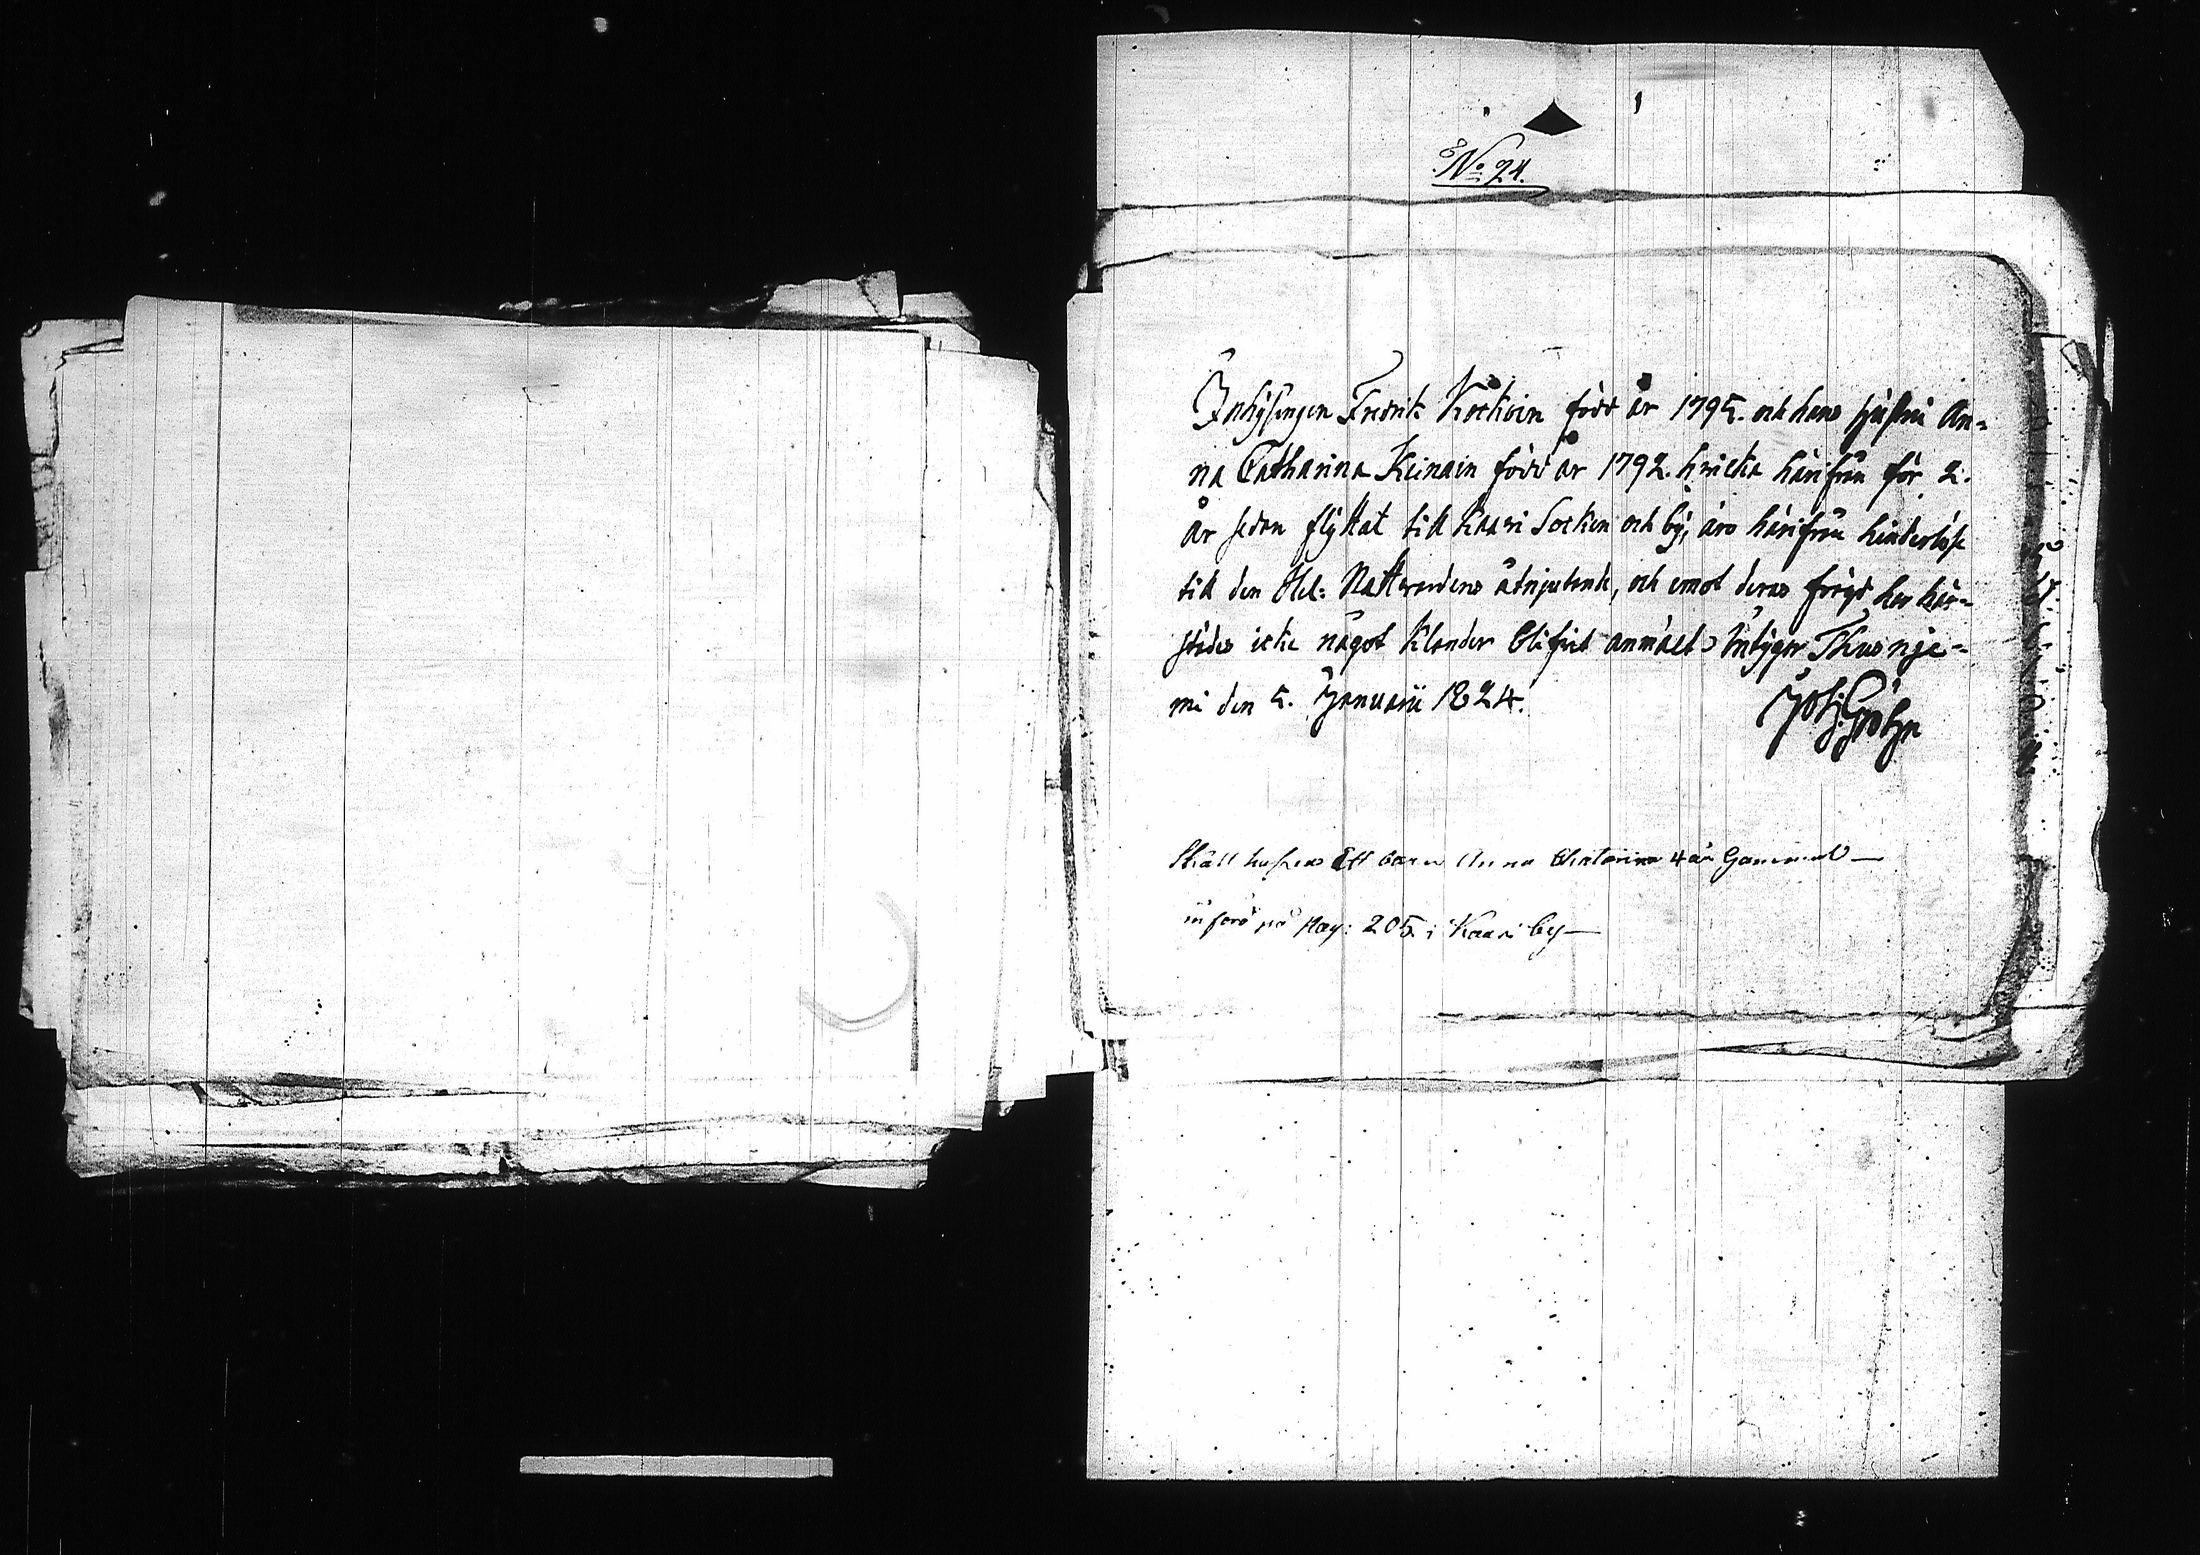 No 24.
Inhysingen Fredrik Kockoin född år 1795. och hans hustru An-
na Catharina Keinain född år 1792. hvilka härifrån för 2.
år sedan flyttat till Kaavi Socken och by, äro härifrån hinderlöse
till den Hel: Nattvardens åtnjutande, och emot deras frejd har här-
städes icke något klander blifvit anmäldt intygar Thusnje-
mi den 5. Januarii 1824.
Joh: Gröhn
Skall hafva Ett barn Anna Chatarina 4 år Gammal
införd på Pag: 205 i Kaavi by